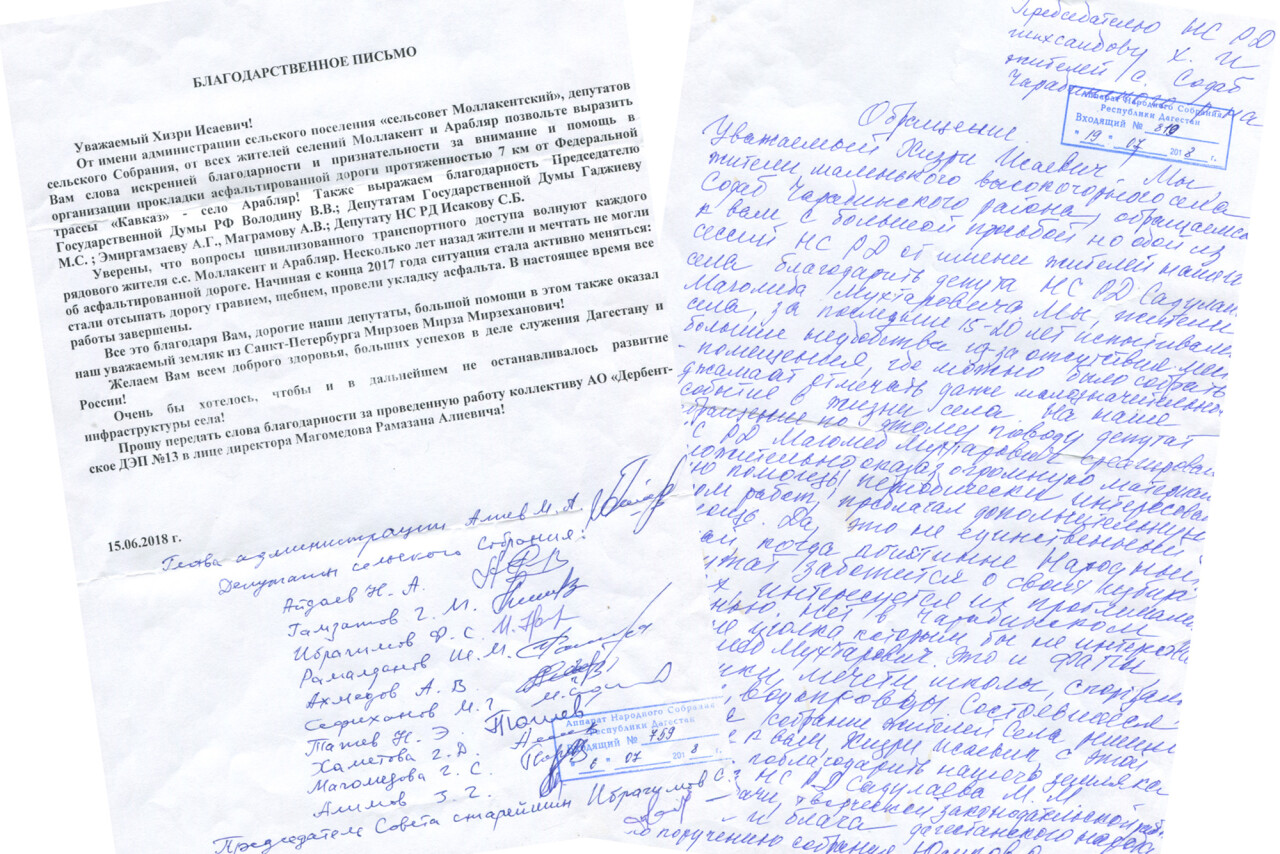 БЛАГОДАРСТВЕННОЕ ПИСЬМО
Уважаемый Хизри Исаевич!
От имени администрации сельского поселения «сельсовет Моллакентский», депутатов
сельского Собрания, от всех жителей селений Моллакент и Арабляр позвольте выразить
Вам слова искренней благодарности и признательности за внимание и помощь в
организации прокладки асфальтированной дороги протяженностью 7 км от Федеральной
трассы «Кавказ» - село Арабляр! Также выражаем благодарность Председателю
Государственной Думы РФ Володину В.В.; Депутатам Государственной Думы Гаджиеву
М.С. ; Эмиргамзаеву А.Г., Маграмову А.В.; Депутату НС РД Исакову С.Б.
Уверены, что вопросы цивилизованного транспортного доступа волнуют каждого
рядового жителя с.с. Моллакент и Арабляр. Несколько лет назад жители и мечтать не могли
об асфальтированной дороге. Начиная с конца 2017 года ситуация стала активно меняться:
стали отсыпать дорогу гравием, щебнем, провели укладку асфальта. В настоящее время все
работы завершены.
Все это благодаря Вам, дорогие наши депутаты, большой помощи в этом также оказал
наш уважаемый земляк из Санкт-Петербурга Мирзоев Мирза Мирзеханович!
Желаем Вам всем доброго здоровья, больших успехов в деле служения Дагестану и
России!
Очень бы хотелось, чтобы и в дальнейшем не останавливалось развитие
инфраструктуры села!
Прошу передать слова благодарности за проведенную работу коллективу АО «Дербент-
ское ДЭП №13 в лице директора Магомедова Рамазана Алиевича!
15.06.2018 г.
Глава администрации Алиев М. А.
Депутаты сельского Собрания:
Айдаев Н. А.
Гамзатов Г. М.
Ибрагимов Ф. С.
Рамалданов Ш. М.
Ахмедов А. В.
Сефиханов М. Г.
Ташев Н. Э.
Хаметова Г. Д.
Магомедова Г. С.
Алимов З. Г.
Председатель Совета старейшин Ибрагимов С.
Аппарат Народного Собрания
Республики Дагестан
Входящий № 759
" 6 " 07 2018 г.
Председателю НС РД
Шихсаидову Х. И
жителей с. Содаб
Чарадинского р-на
Аппарат Народного Собрания
Республики Дагестан
Входящий № 810
" 19 " 07 2018 г.
Обращение
Уважаемый Хизри Исаевич! Мы
жители маленького высокогорного села
Содаб Чарадинского района, обращаемся
к вам с большой просьбой на одой из
сессий НС РД от имени жителей нашего
села благодарить депута НС РД Садулаев
Магомеда Мухтаровича Мы, жители
села, за последние 15-20 лет испытывали
большие неудобства из-за отсутствия
помещения, где можно было собрать
джамаат отмечать даже малозначительное
событие в жизни села На наше
обращение по этому поводу депутат
НС РД Магомед Мухтарович среагировал
положительно оказав огромную материал
ую помощь, периодически интересовал
ом работ, предлагал дополнительную
ощь. Да, это не единственный
ай когда поистине Народный
утат заботится о своих
х интересуется их проблемами
нью. Нет в Чарадинском
не уголка которым бы не интересова
мед Мухтарович. Это и ФАПы
мечети школы, спортзалы
водопроводы Состоявшееся
е собрание жителей села
к вам, Хизри Исаевич, с этой
поблагодарить нашего земляка
НС РД Садулаева М. М
ачи, творческой законодательской раб
и блага дагестанского народа
по поручению собрания